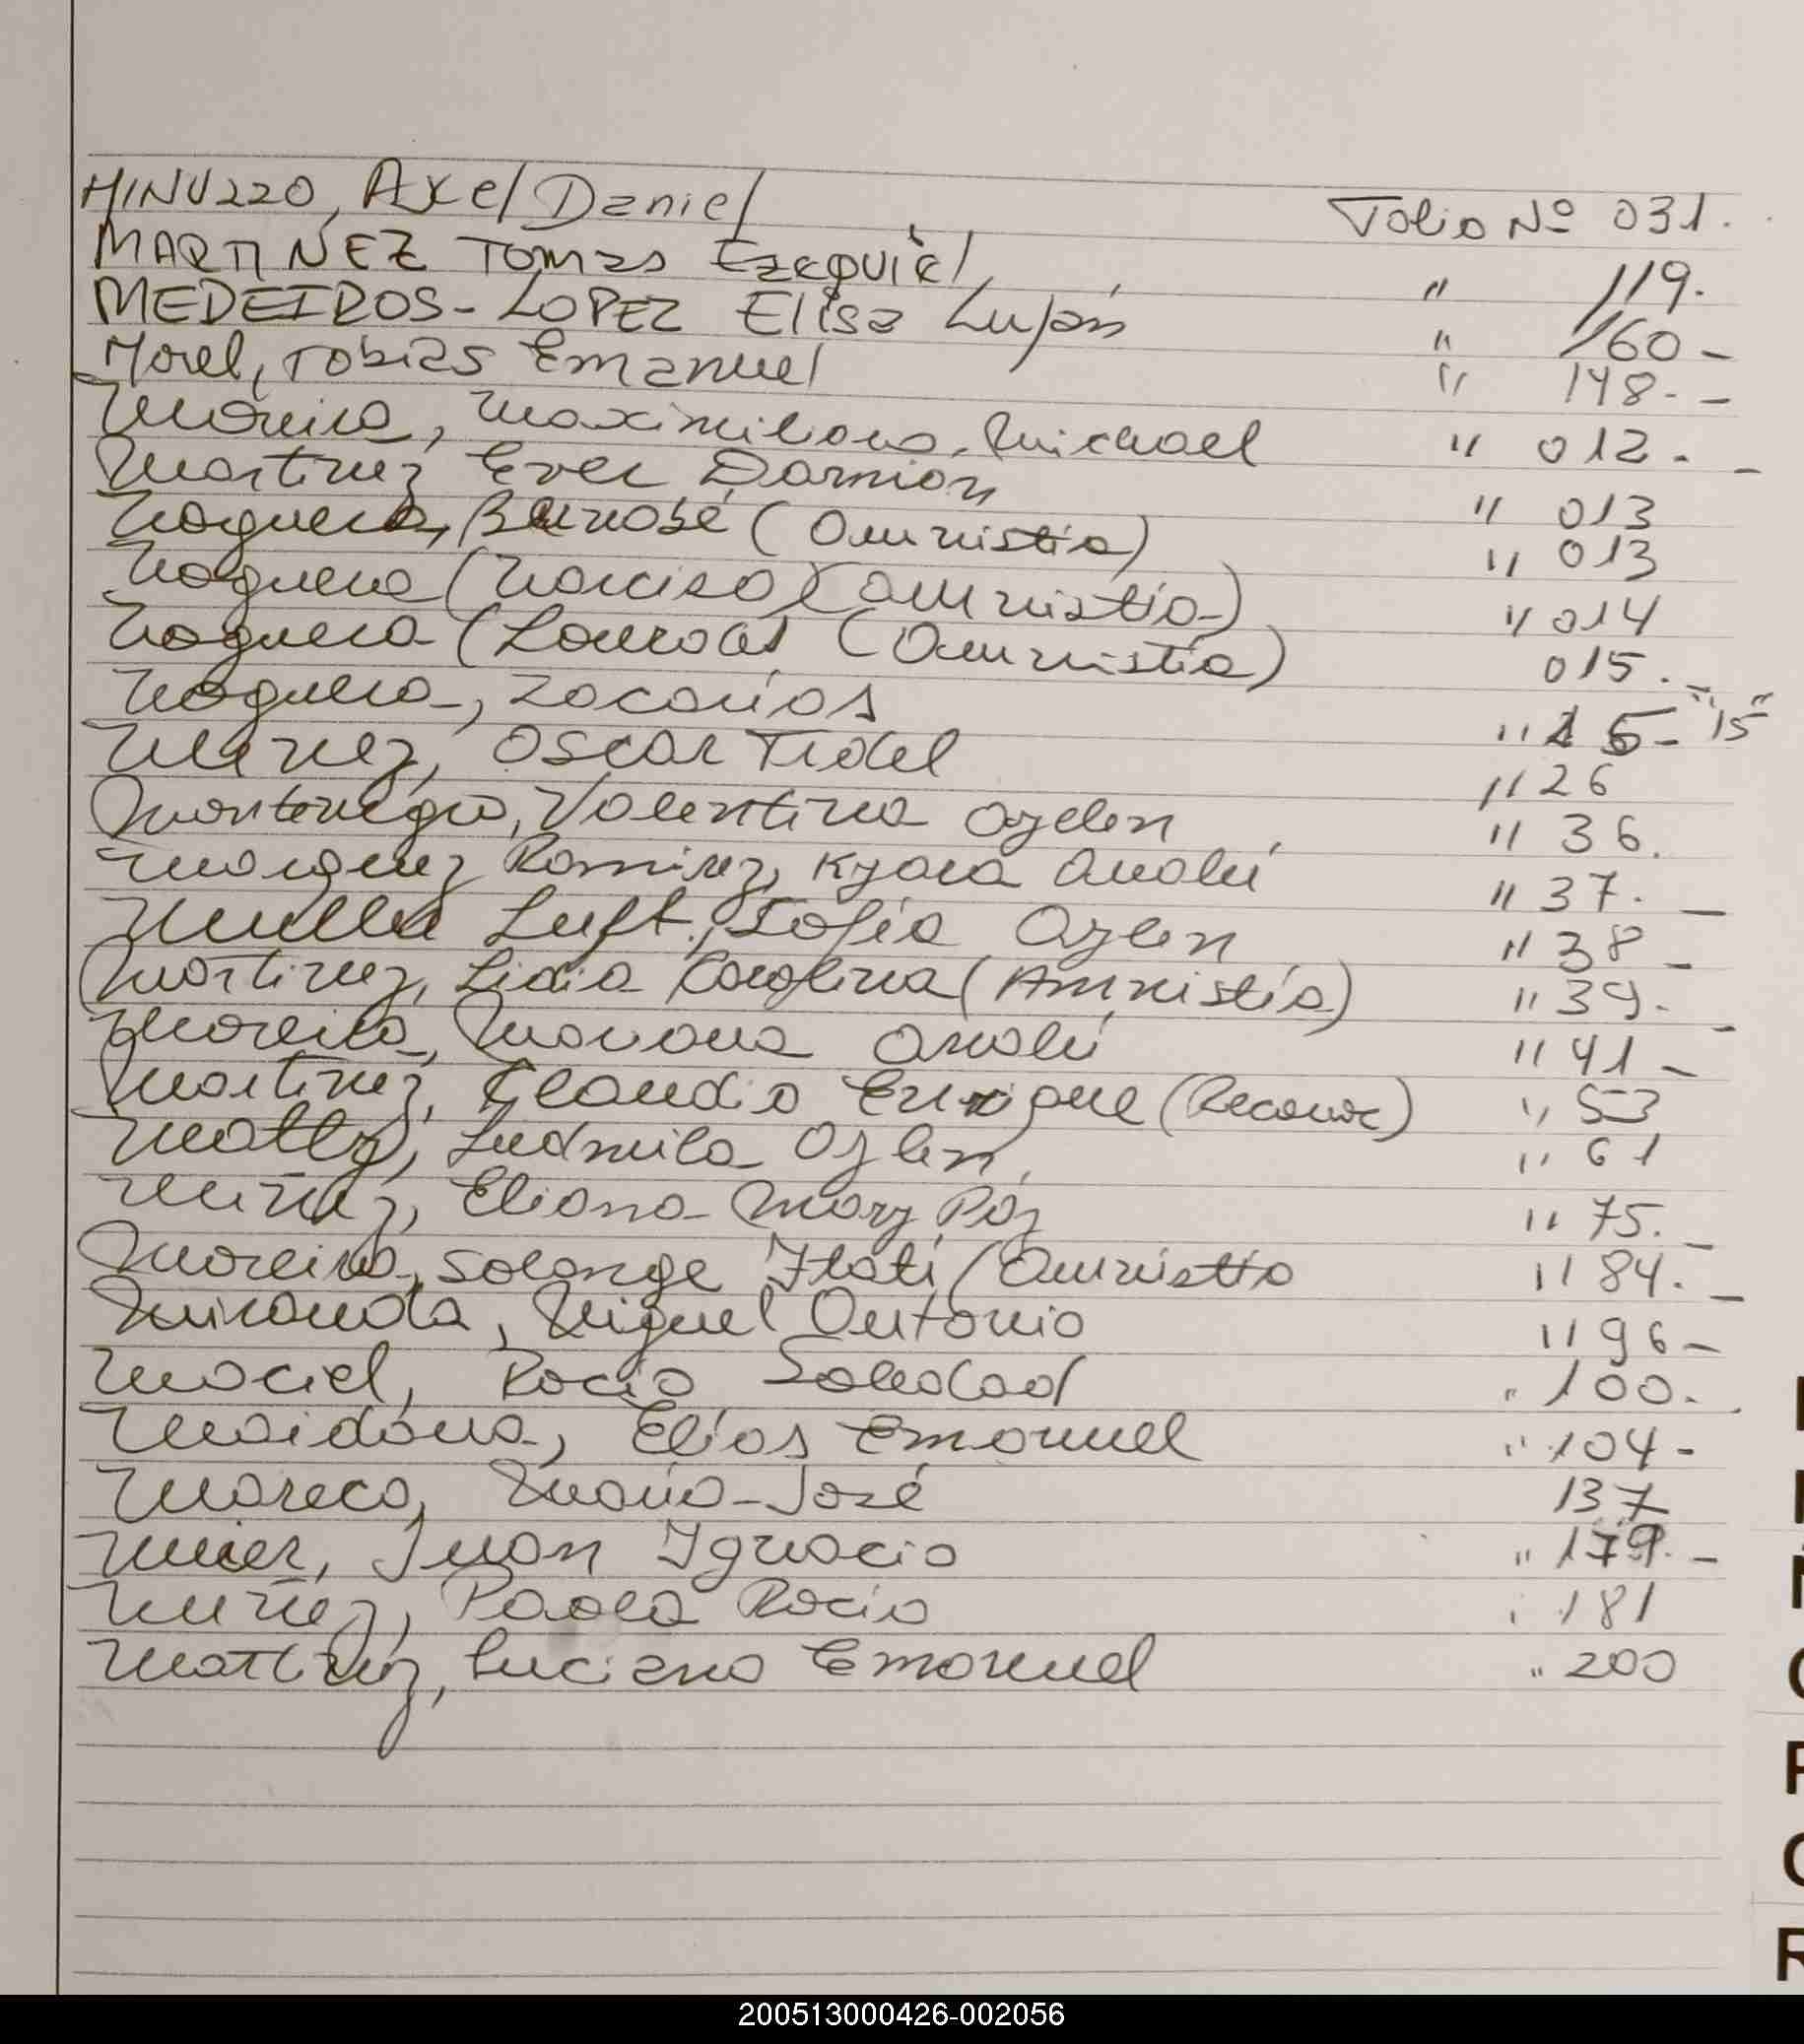 MINUZZO, Axel Daniel Folio Nº 031.
MARTINEZ Tomas Ezequiel " 119.
MEDEIROS-LOPEZ Elisa Luján " 160 -
Morel, Tobias Emanuel " 148. -
Moreira, Maximiliano, Michael " 012. -
Martinez Ever Damián " 013
Noguera, (Amnistía) " 013
Noguera (Narciso) (amnistía) " 014
Noguera (Lourdes (Amnistía) 015. -
Noguera, Zacarías " 15 - "15"
Nuñez, Oscar Fidel " 26
Montenegro, Valentina Aylen " 36.
Marquez Ramirez, Kyara Anahí " 37. -
Muller Luft, Sofía Aylen " 38 -
Martinez, Lidia Carolina (Amnistía) " 39. -
Moreira, Mariana Anahí " 41 -
Martinez, Claudio Enrique (Reconoc) " 53
Ludmila Aylen " 61
Nuñez, Eliana Mary Paz " 75. -
Moreira, Solange Itatí (Amnistía " 84. -
Miranda, Miguel Antonio " 96 -
Maciel, Rocío Soledad " 100. -
Maidana, Elías Emanuel " 104 -
Mareco, María José 137
Juan Ignacio " 179. -
Nuñez, Paola Rocio " 181
Martinez, Luciano Emanuel " 200
200513000426-002056